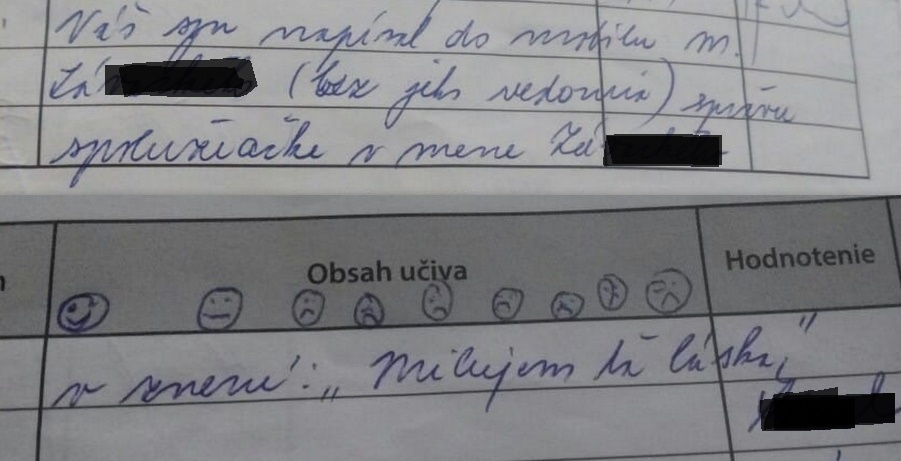 Váš syn napísal do mobilu m.
Zá
(bez jeho vedomia) správu
spolužiačke v mene Zá
Obsah učiva
Hodnotenie
v znení: „Milujem ťa láska,"